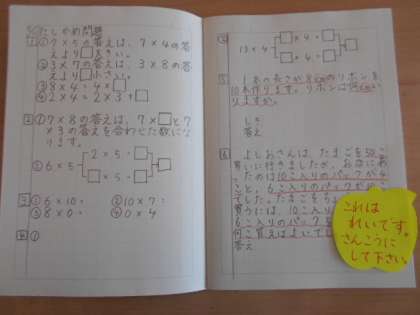 たしかめ問題
1 ① 7×5の答えは、7×4の答
えより□大きい。
② 3×7の答えは、3×8の答
えより□小さい。
③ 8×4=4×□
④ 2×4=2×3+□
2 ① 7×8の答えは、7×□と7
×3の答えを合わせた数にな
ります。
② 6×5 2×5=□ □
□×5=□
3 ① 6×10= ② 10×7=
③ 8×0= ④ 0×4
4 ①
② 13×4 □×4=□ □
□×4=□
5 1本の長さが8cmのリボンを
10本作ります。リボンは何cm
りますか。
しき
答え
6 よしおさんは、たまごを50こ
買いに行きましたが、お店にあ
ったのは10こ入りのパックが4
こと、6こ入りのパックが
でした。たまごを
買うには、10こ入り
6こ入りのパックを
何こ買えばよいでし
答え
これは
れいです。
さんこうに
して下さい。